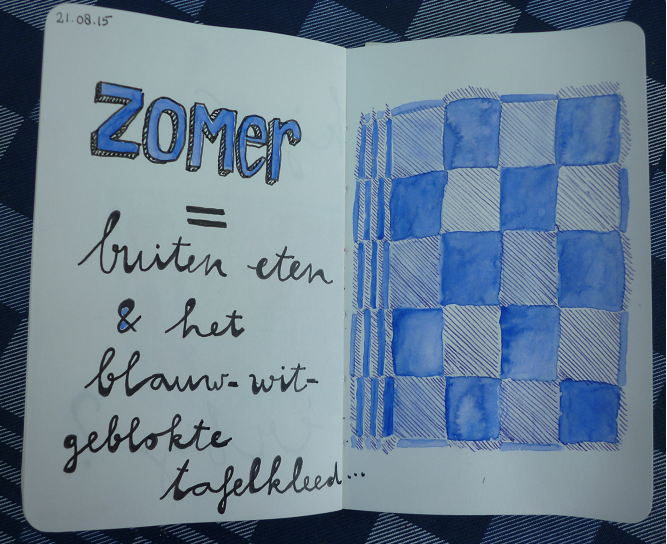 21.08.15
ZOMer
=
buiten eten
& het
blauw-wit-
geblokte
tafelkleed...